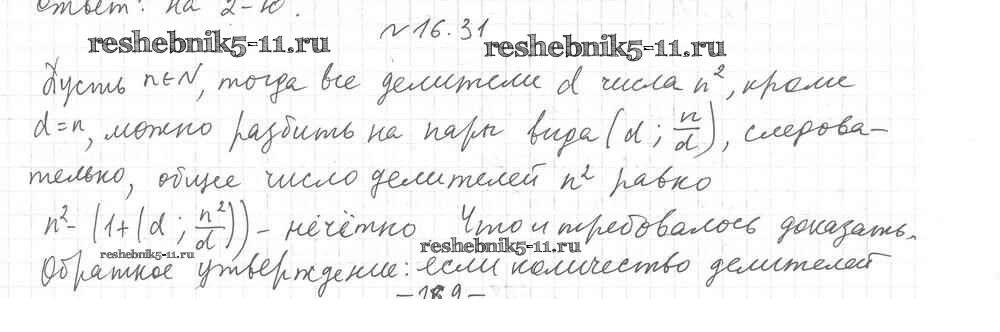 Ответ: на 2-ю.
№16.31
reshebnik5-11.ru
reshebnik5-11.ru
Пусть n∈N, тогда все делители d числа n², кроме
d=n, можно разбить на пары вида (d; n/d), следова-
тельно, общее число делителей n² равно
n²-(1+(d; n²/d)) - нечётно Что и требовалось доказать.
reshebnik5-11.ru
reshebnik5-11.ru
Обратное утверждение: если количество делителей
-189-